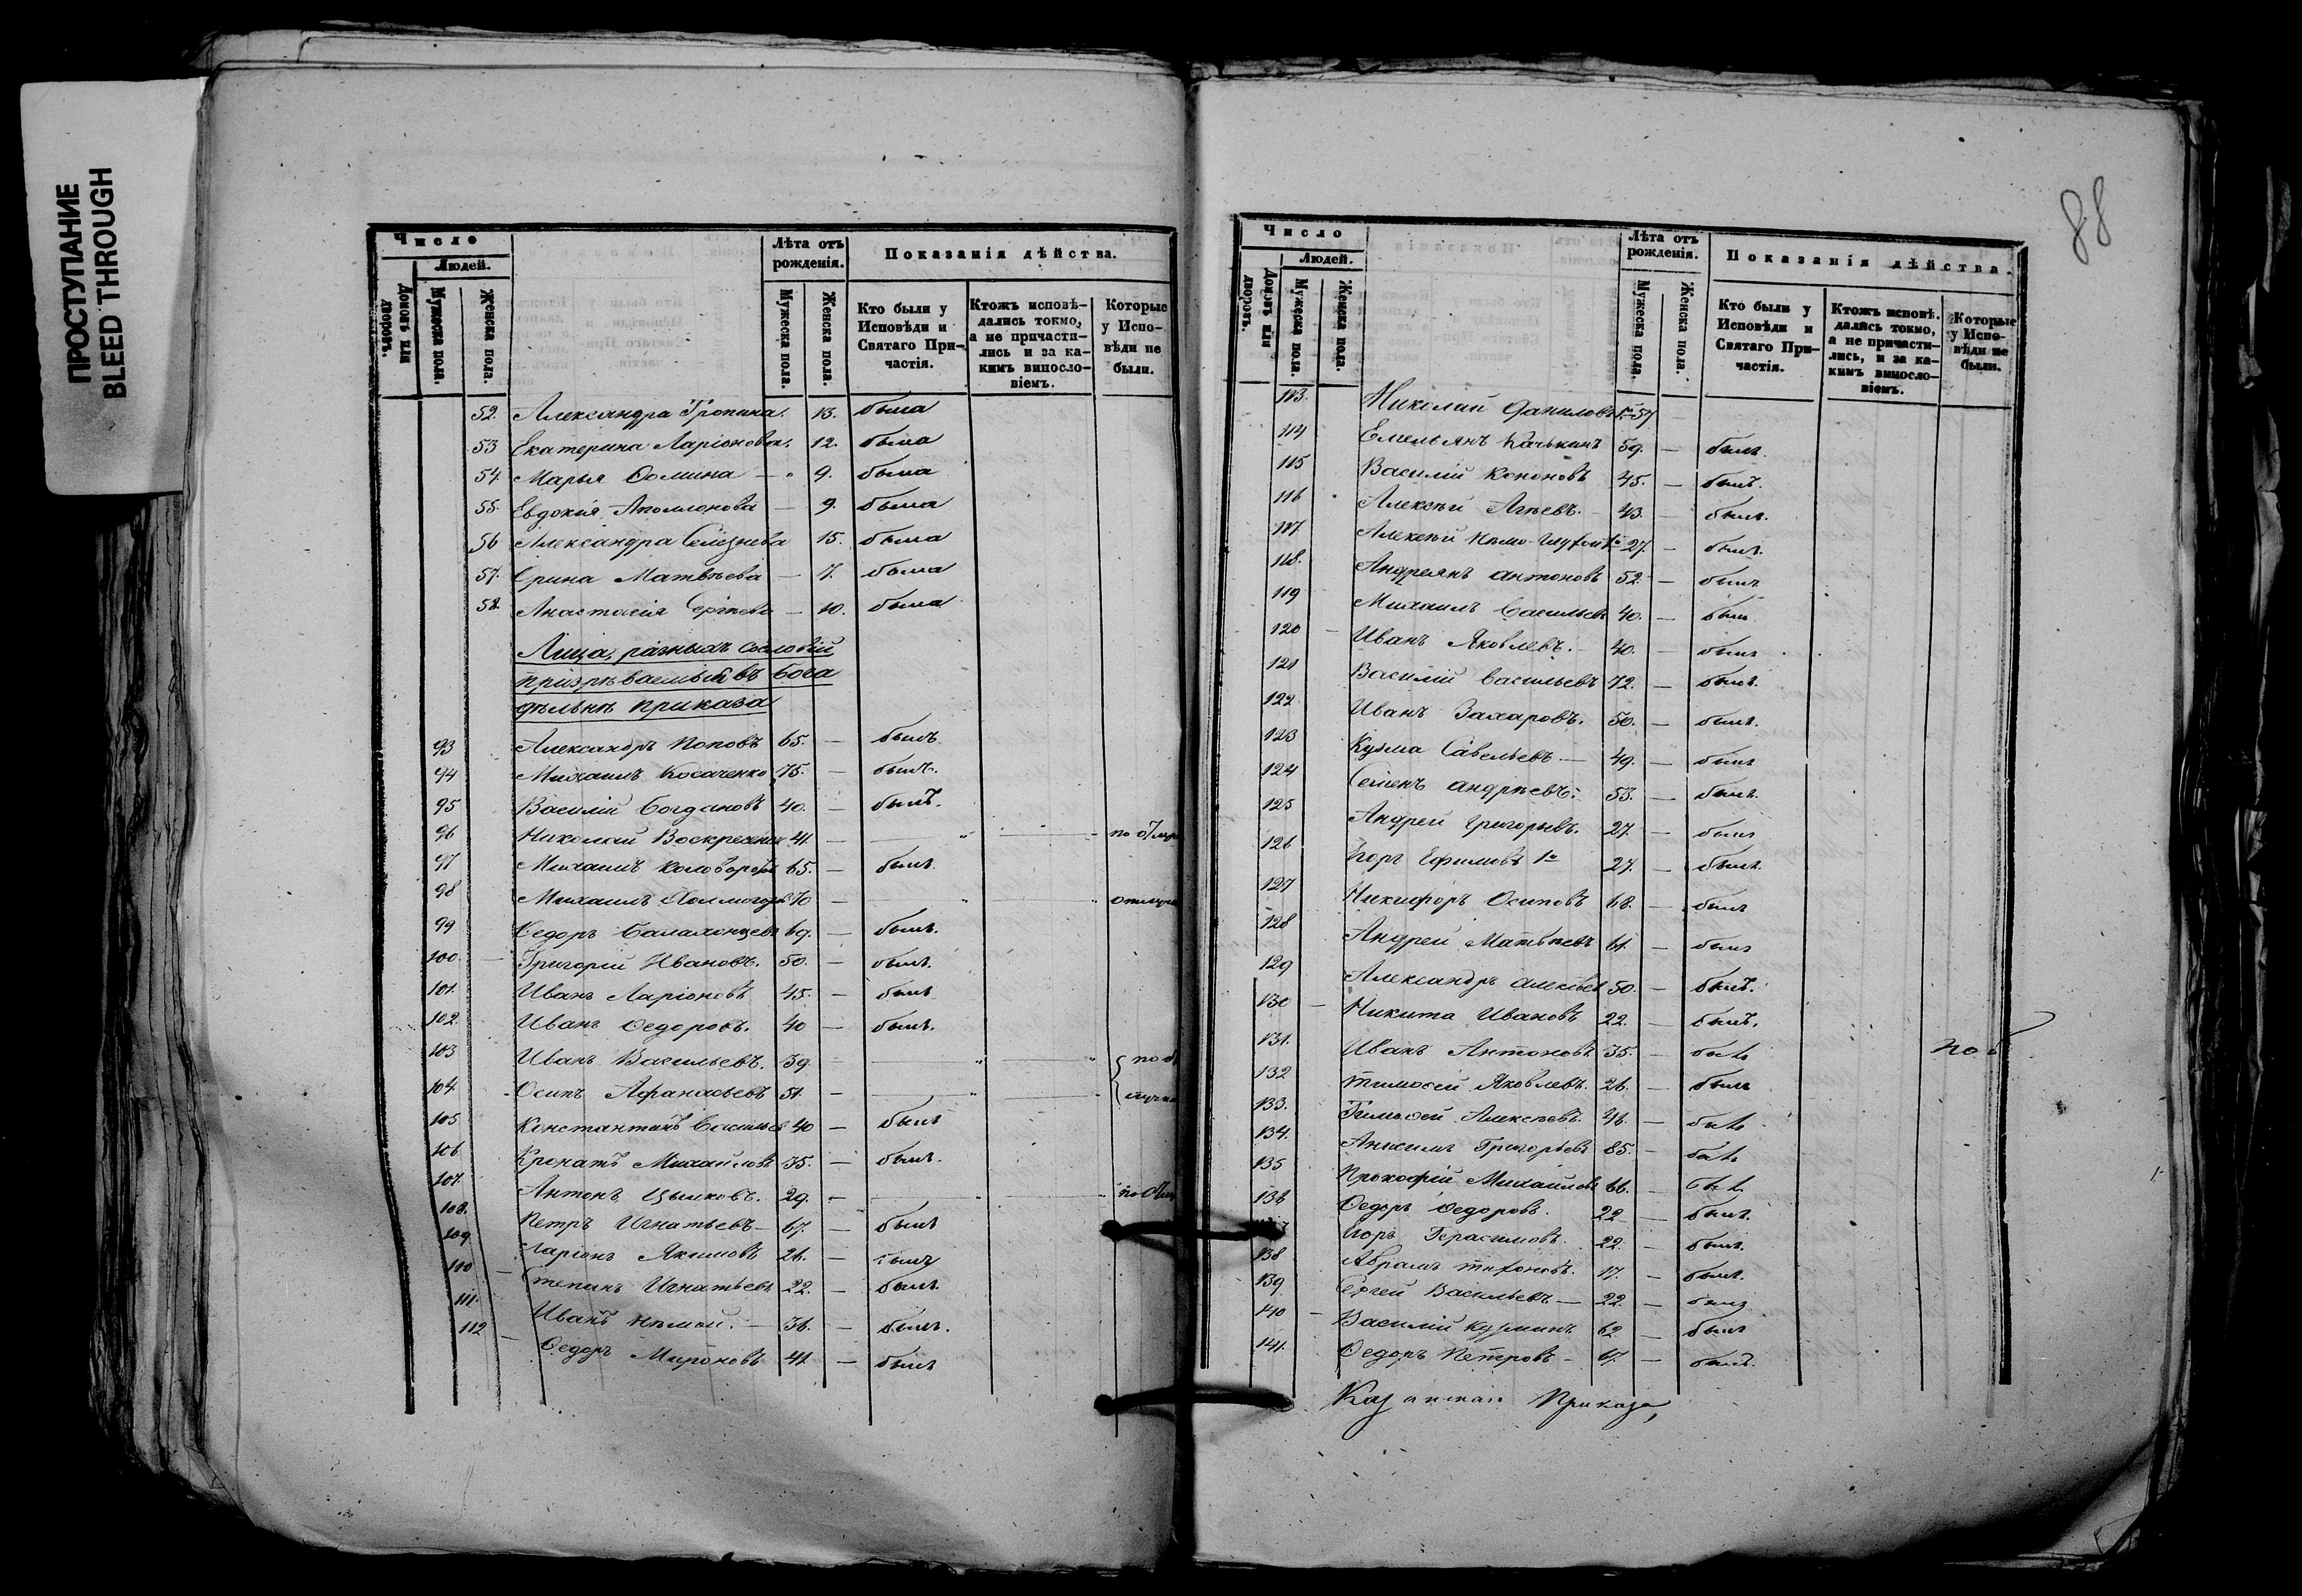 ПРОСТУПАНИЕ
BLEED THROUGH
Число
Людей.
Домовъ или дворовъ.
Мужеска пола.
Женска пола.
Лѣта отъ рожденія.
Мужеска пола.
Женска пола.
Показанія дѣйства.
Кто были у Исповѣди и Святаго Причастія.
Ктожъ исповѣдались токмо, а не причастились и за какимъ винословіемъ.
Которые у Исповѣди не были.
52. Александра Тропина. 13. была
53 Екатерина Ларіонова. 12. была
54. Марья Фомина — 9. была
55. Евдокія Аполлонова — 9. была
56 Александра Селезнева 15. была
57. Ирина Матвѣева — 7. была
58. Анастасія Сергѣева — 10. была
Лица, разныхъ сословій
призрѣваемый въ бога
дѣльнѣ приказа
93 Александръ Поповъ 65. — былъ
94 Михаилъ Косаченко 75. — былъ.
95 Василій Богдановъ 40. — былъ.
96 Николай 41. —
97 Михаилъ 65. — былъ.
98 Михаилъ 70 —
99 Федоръ Балахонцевъ 69. — былъ.
100. Григорій Ивановъ. 50. — былъ.
101. Иванъ Ларіоновъ 45. — былъ
102. Иванъ Федоровъ. 40 — былъ.
103 Иванъ Васильевъ. 39.
104. Осипъ Афанасьевъ 51. —
105 Константинъ Васильев 40 — былъ
106 Михайловъ 35. — былъ.
107. Антонъ 29. —
108. Петръ Игнатьевъ — 67. — былъ
109 Ларіонъ Якимовъ 26. — былъ
110 Степанъ Игнатьевъ 22. — былъ.
111. Иванъ Нѣмой. — 36. — былъ.
112 Федоръ Мироновъ 41. — былъ
88
Число
Людей.
Домовъ или дворовъ.
Мужеска пола.
Женска пола.
Лѣта отъ рожденія.
Мужеска пола.
Женска пола.
Показанія дѣйства.
Кто были у Исповѣди и Святаго Причастія.
Ктожъ исповѣдались токмо, а не причастились, и за какимъ винословіемъ.
Которые у Исповѣди не были.
113. Николай Даниловъ 57 —
114 Емельянъ 59. — былъ.
115 Василій Кононовъ 45. — былъ.
116 Алексѣй Агѣевъ. 43. — былъ.
117 Алексѣй Нѣмо-глухой 1й 27. — былъ.
118. Андреянъ Антоновъ 52. — былъ
119 Михаилъ Васильевъ 40. — былъ
120 — Иванъ Яковлевъ. 40. — былъ
121 Василій Васильевъ 72. — былъ.
122 Иванъ Захаровъ. 50. — былъ.
123 Кузма Савельевъ. — 49. — былъ
124 Семенъ Андрѣевъ. 53. — былъ.
125 Андрей Григорьевъ. 27. — былъ
126 Егоръ Ефимовъ 1й 27. — былъ.
127 Никифоръ Осиповъ 68. — былъ
128 Андрей Матвѣевъ 61. — былъ
129 Александръ Алексѣев 50. — былъ.
130 — Никита Ивановъ 22. — былъ.
131. Иванъ Антоновъ 35. —
132 Тимофей Яковлевъ. 26. — былъ
133. Тимофей Алексѣевъ. 46. —
134. Анисимъ Григорьевъ 85. —
135 Прокофій Михайловъ 66. —
136 Федоръ Федоровъ. 22 — былъ.
Егоръ Герасимовъ. 22. — былъ.
138 Абрамъ Тифоновъ. 17. — былъ.
139 Сергей Васильевъ — 22. — былъ
140 — Василій Кузминъ. 62 — былъ
141. Федоръ Петровъ — 67. — былъ.
Приказа,